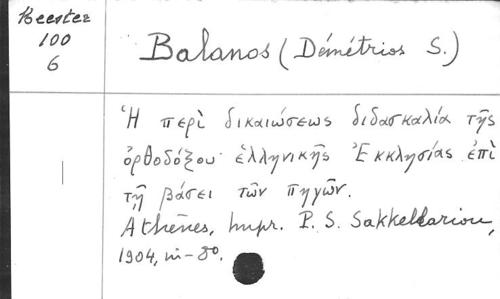 Reester
100
6
Balanos (Démétrios S.)
Ἡ περὶ δικαιώσεως διδασκαλία τῆς
ὀρθοδόξου ἑλληνικῆς Ἐκκλησίας ἐπὶ
τῇ βάσει τῶν πηγῶν.
Athènes, Impr. P. S. Sakkellariou,
1904, in-8º.